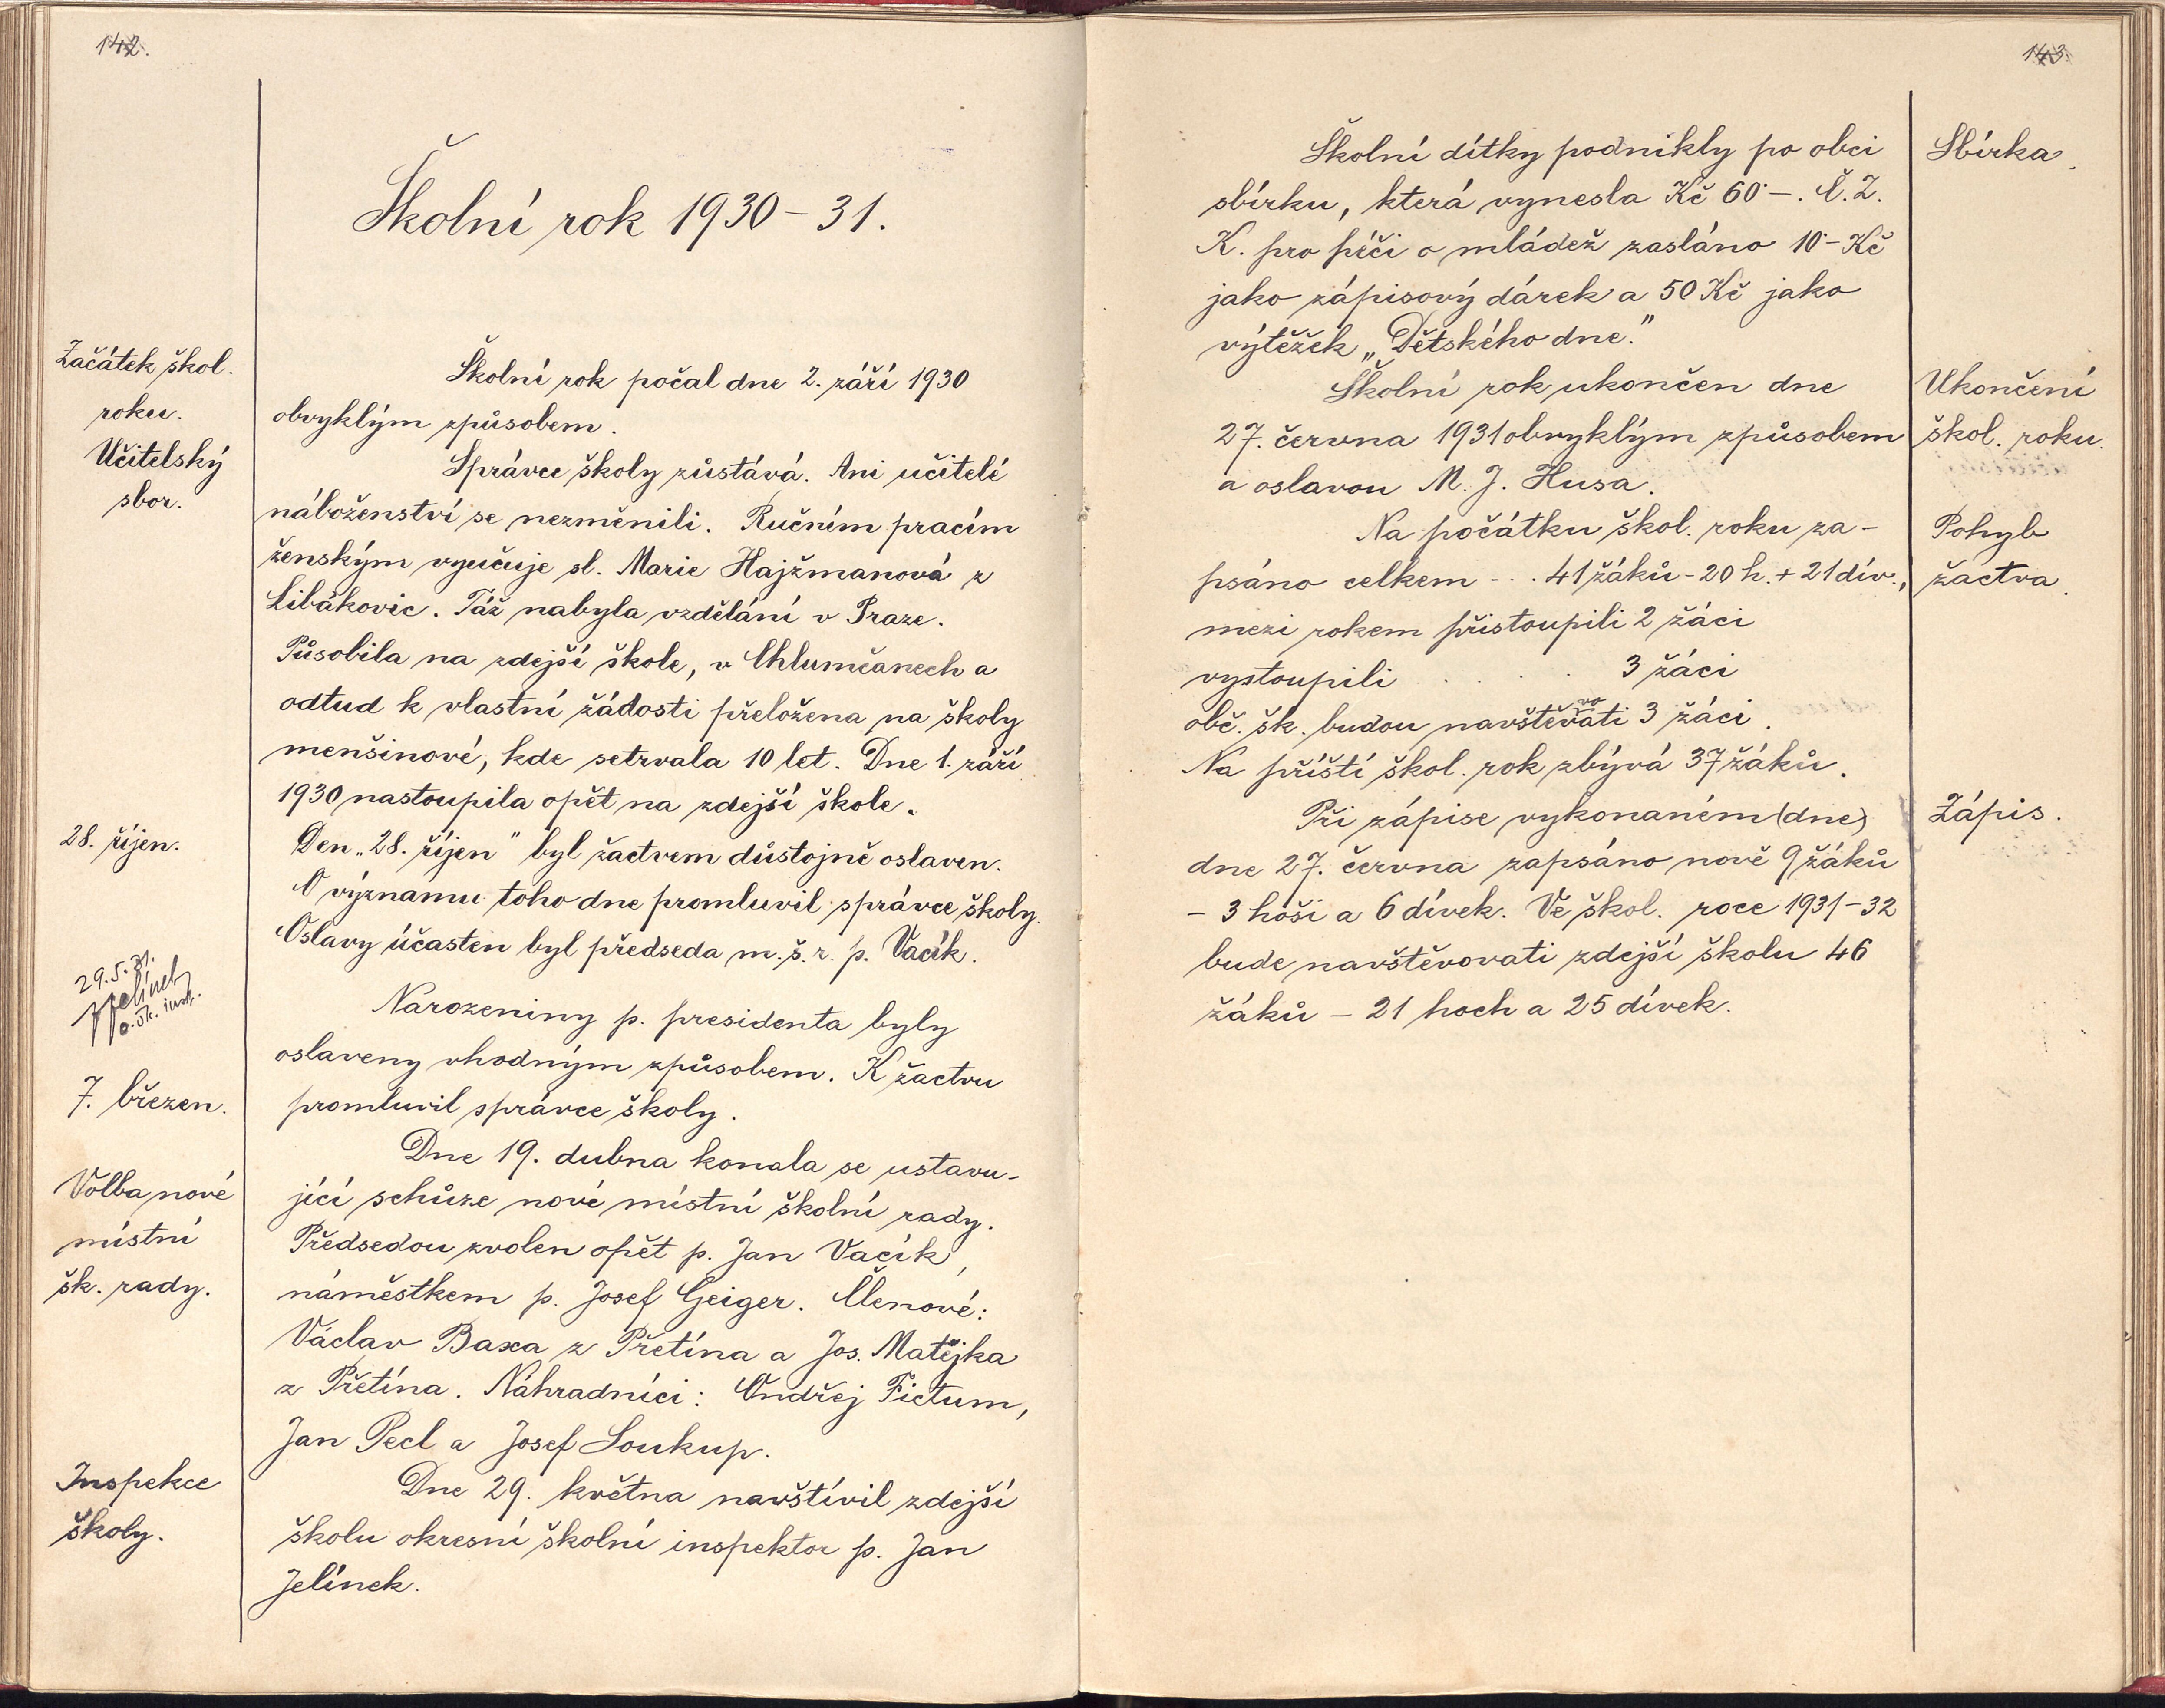 142.
Školní rok 1930 – 31.
Začátek škol.
roku.
Školní rok počal dne 2. září 1930
obvyklým způsobem.
Učitelský
sbor.
Správce školy zůstává. Ani učitelé
náboženství se nezměnili. Ručním pracím
ženským vyučuje sl. Marie Hajžmanová z
Libákovic. Táž nabyla vzdělání v Praze.
Působila na zdejší škole, v Chlumčanech a
odtud k vlastní žádosti přeložena na školy
menšinové, kde setrvala 10 let. Dne 1. září
1930 nastoupila opět na zdejší škole.
28. říjen.
Den „28. říjen" byl žactvem důstojně oslaven.
O významu toho dne promluvil správce školy.
Oslavy účasten byl předseda m. š. r. p. Vacík.
29.5.31.
Jelínek
o. šk. insp.
7. březen.
Narozeniny p. presidenta byly
oslaveny vhodným způsobem. K žactvu
promluvil správce školy.
Volba nové
místní
šk. rady.
Dne 19. dubna konala se ustavu-
jící schůze nové místní školní rady.
Předsedou zvolen opět p. Jan Vacík,
náměstkem p. Josef Geiger. Členové:
Václav Baxa z Přetína a Jos. Matějka
z Přetína. Náhradníci: Ondřej Fictum,
Jan Pecl a Josef Soukup.
Inspekce
školy.
Dne 29. května navštívil zdejší
školu okresní školní inspektor p. Jan
Jelínek.
143.
Sbírka.
Školní dítky podnikly po obci
sbírku, která vynesla Kč 60·–. Č. Z.
K. pro péči o mládež zasláno 10·– Kč
jako zápisový dárek a 50 Kč jako
výtěžek „Dětského dne."
Ukončení
škol. roku.
Školní rok ukončen dne
27. června 1931 obvyklým způsobem
a oslavou M. J. Husa.
Pohyb
žactva.
Na počátku škol. roku za-
psáno celkem - . . 41 žáků – 20 h. + 21 dív.,
mezi rokem přistoupili 2 žáci
vystoupili . . . . 3 žáci
obč. šk. budou navštěvovati 3 žáci.
Na příští škol. rok zbývá 37 žáků.
Zápis.
Při zápise vykonaném (dne)
dne 27. června zapsáno nově 9 žáků
– 3 hoši a 6 dívek. Ve škol. roce 1931–32
bude navštěvovati zdejší školu 46
žáků – 21 hoch a 25 dívek.